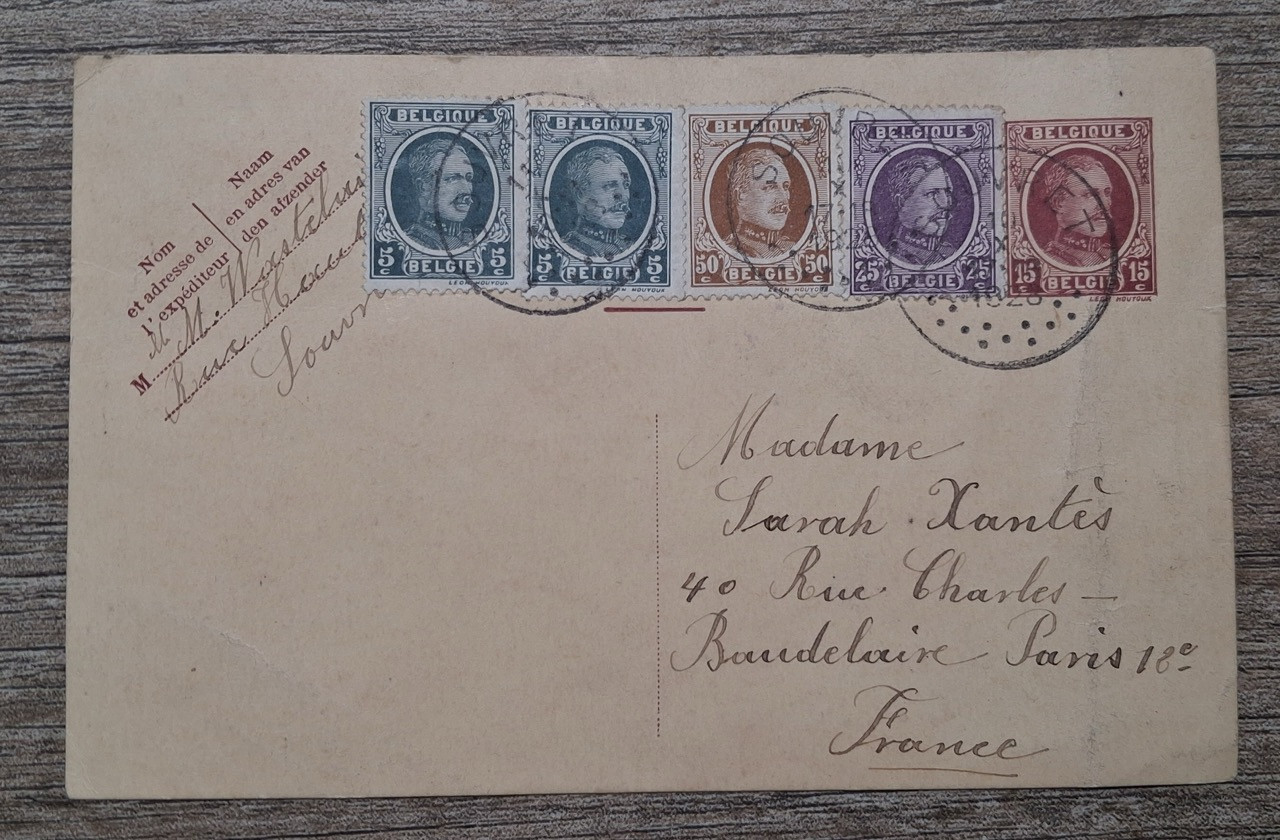 Nom
et adresse de
l'expéditeur
Naam
en adres van
den afzender
M. M.
Rue
Souvr
BELGIQUE
5 c BELGIË 5 c
LEON HOUYOUX
BELGIQUE
5 c BELGIË 5 c
LEON HOUYOUX
BELGIQUE
50 c BELGIË 50 c
LEON HOUYOUX
BELGIQUE
25 c BELGIË 25 c
BELGIQUE
15 c BELGIË 15 c
LEON HOUYOUX
Madame
Sarah Xantès
40 Rue Charles –
Baudelaire Paris 12e
France